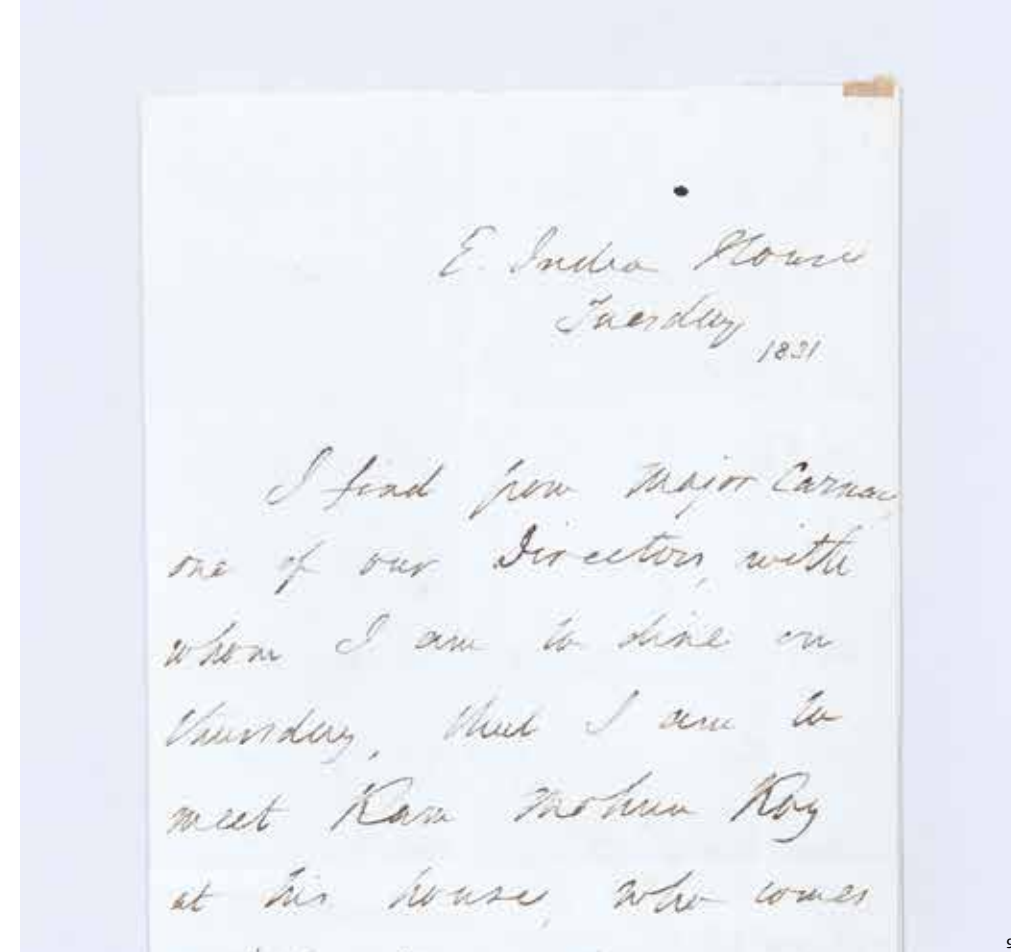 E. India House
Tuesday
1831
I find from Major Carnac
one of our Directors, with
whom I am to dine on
Thursday, that I am to
meet Ram Mohun Roy
at his house, who comes